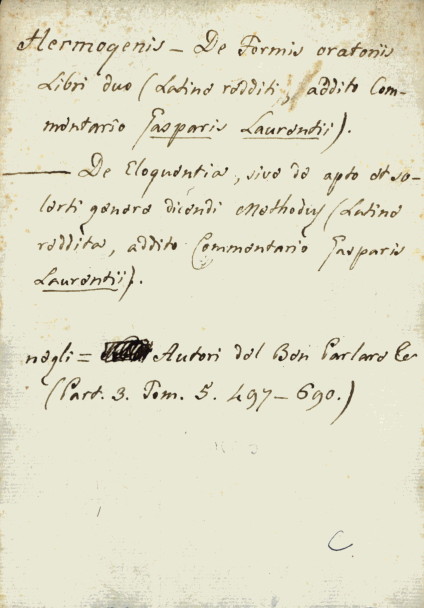 Hermogenis — De Formis oratoriis
Libri duo (Latine redditi, addito Com-
mentario Gasparis Laurentii).
——— De Eloquentia, sive de apto et so-
lerti genere dicendi Methodus (Latine
reddita, addito Commentario Gasparis
Laurentii).
negli = Autori del Ben Parlare &c
(Part. 3. Tom. 5. 497–690.)
C.